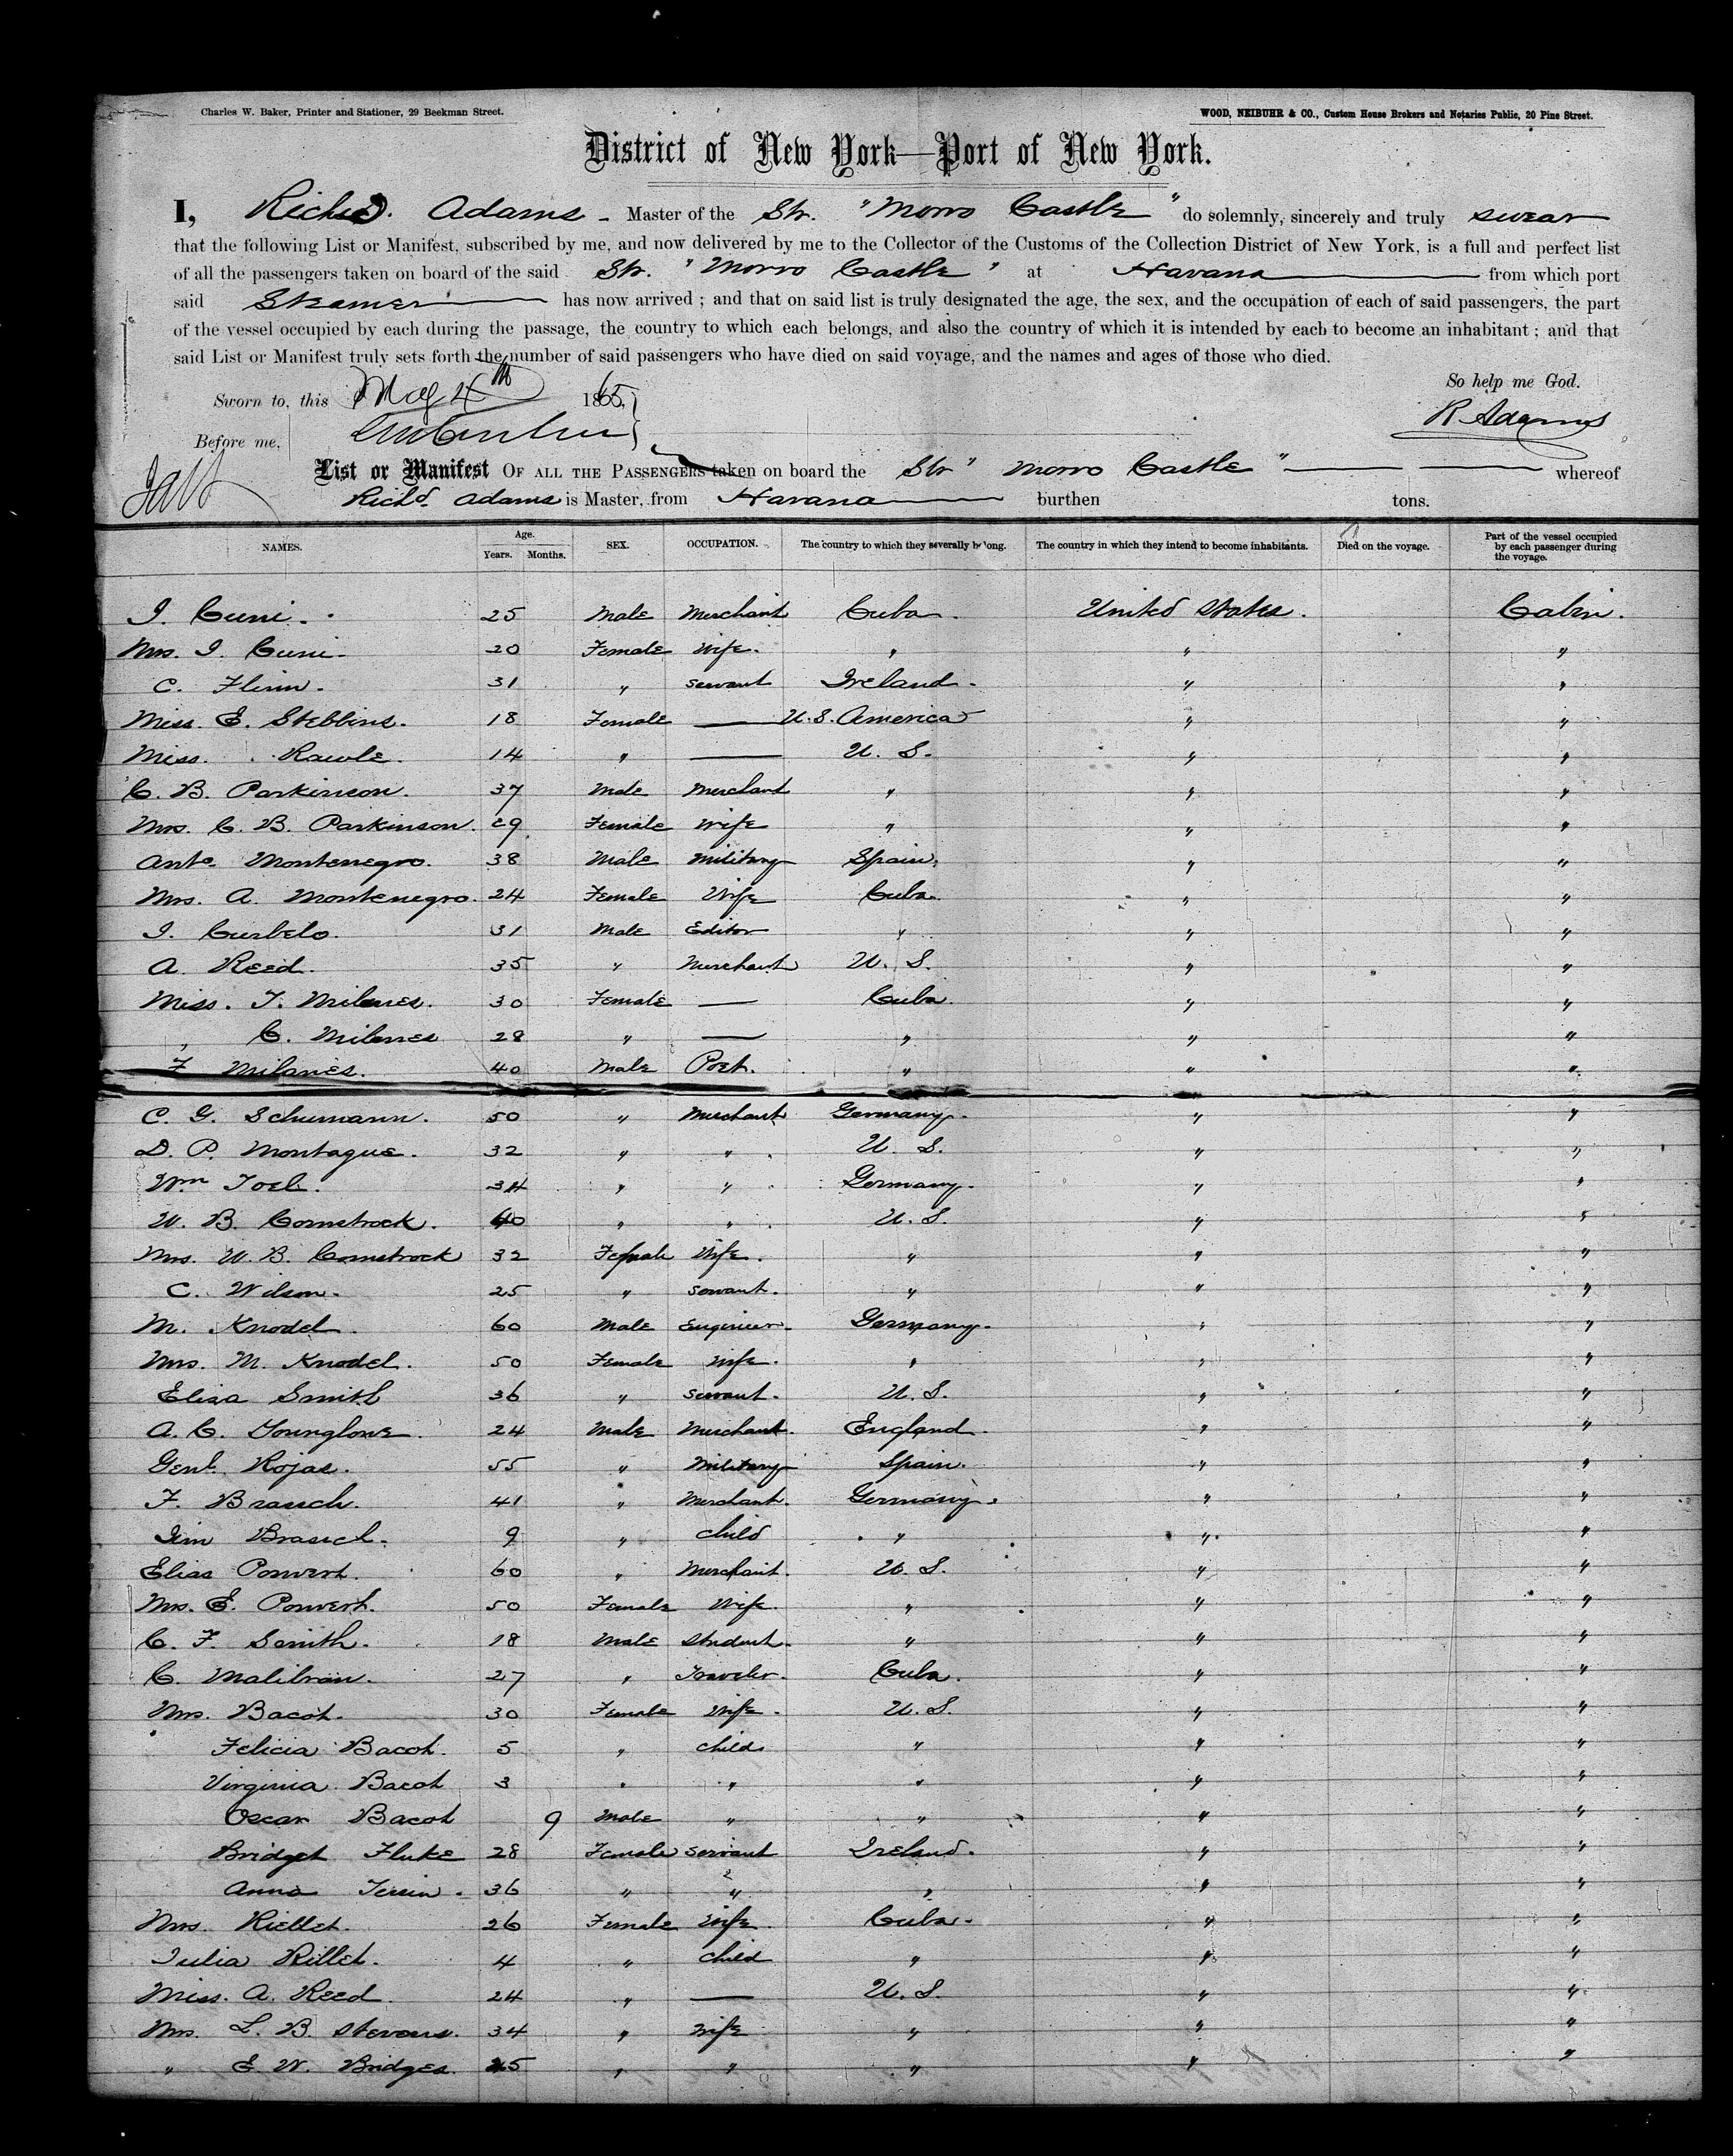 Charles W. Baker, Printer and Stationer, 29 Beekman Street.
WOOD, NEIBUHR & CO., Custom House Brokers and Notaries Public, 20 Pine Street.
District of New York—Port of New York.
I, Richd. Adams - Master of the Str. "Morro Castle" do solemnly, sincerely and truly swear
that the following List or Manifest, subscribed by me, and now delivered by me to the Collector of the Customs of the Collection District of New York, is a full and perfect list
of all the passengers taken on board of the said Str. "Morro Castle" at Havana from which port
said Steamer has now arrived ; and that on said list is truly designated the age, the sex, and the occupation of each of said passengers, the part
of the vessel occupied by each during the passage, the country to which each belongs, and also the country of which it is intended by each to become an inhabitant ; and that
said List or Manifest truly sets forth the number of said passengers who have died on said voyage, and the names and ages of those who died.
So help me God.
Sworn to, this May 4th 1865,
R Adams
Before me,
List or Manifest OF ALL THE PASSENGERS taken on board the Str "Morro Castle" whereof
Richd. Adams is Master, from Havana burthen tons.
NAMES. Age. Years. Months. SEX. OCCUPATION. The country to which they severally belong. The country in which they intend to become inhabitants. Died on the voyage. Part of the vessel occupied by each passenger during the voyage.
I. Cuni. 25 Male Merchant Cuba. United States. Cabin.
Mrs. I. Cuni. 20 Female Wife. " " "
C. Flinn. 31 " servant Ireland. " "
Miss. E. Stebbins. 18 Female — U.S. America " "
Miss. Rawle. 14 " — U. S. " "
C. B. Parkinson. 37 Male Merchant " " "
Mrs. C. B. Parkinson. 29 Female Wife " " "
Anto. Montenegro. 38 Male Military Spain. " "
Mrs. A. Montenegro. 24 Female Wife Cuba. " "
I. Curbelo. 31 Male Editor " " "
A. Reed. 35 " Merchant U. S. " "
Miss. T. Milanes. 30 Female — Cuba. " "
" C. Milanes 28 " — " " "
F. Milanes. 40 Male Poet. " " "
C. G. Schumann. 50 " Merchant Germany. " "
D. P. Montague. 32 " " U. S. " "
Wm Joel. 34 " " Germany. " "
W. B. Comstock. 40 " " U. S. " "
Mrs. W. B. Comstock 32 Female Wife. " " "
C. Wilson. 25 " servant. " " "
M. Knodel. 60 Male Engineer. Germany. " "
Mrs. M. Knodel. 50 Female Wife. " " "
Eliza Smith 36 " servant. U. S. " "
A. C. Younglove. 24 Male Merchant. England. " "
Genl. Rojas. 55 " Military Spain. " "
F. Brasch. 41 " Merchant. Germany. " "
Brasch. 9 " child " " "
Elias Ponvert. 60 " Merchant. U. S. " "
Mrs. E. Ponvert. 50 Female Wife. " " "
C. F. Smith. 18 Male Student. " " "
C. Malibran. 27 " Traveler. Cuba. " "
Mrs. Bacot. 30 Female Wife. U. S. " "
Felicia Bacot. 5 " child " " "
Virginia Bacot 3 " " " " "
Oscar Bacot 9 Male " " " "
Bridget Fluke 28 Female servant Ireland. " "
Anna 36 " " " " "
Mrs. Riellet. 26 Female Wife. Cuba. " "
Julia Rillet. 4 " child " " "
Miss. A. Reed. 24 " — U. S. " "
Mrs. L. B. Stevens. 34 " Wife " " "
" E. W. Bridges. 25 " " " " "